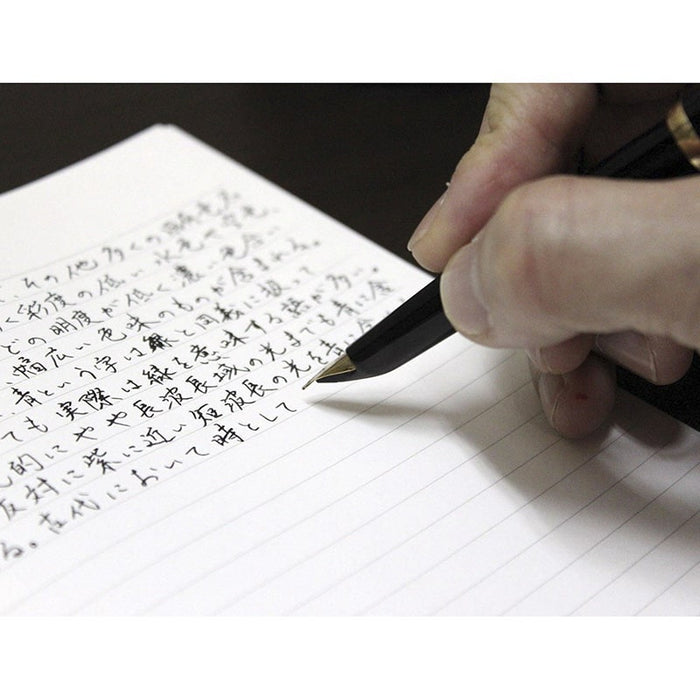 、その他多くの同系色名
く彩度の低い水色や空色、
どの明度が低く濃い色合い
幅広い色味のものが含まれる。
青という字は緑と同義に扱って
ても実際は緑を意味する語が多い。
的にやや長波長域の光までも青に含
反対に紫に近い短波長の光を青
る。古代において時として